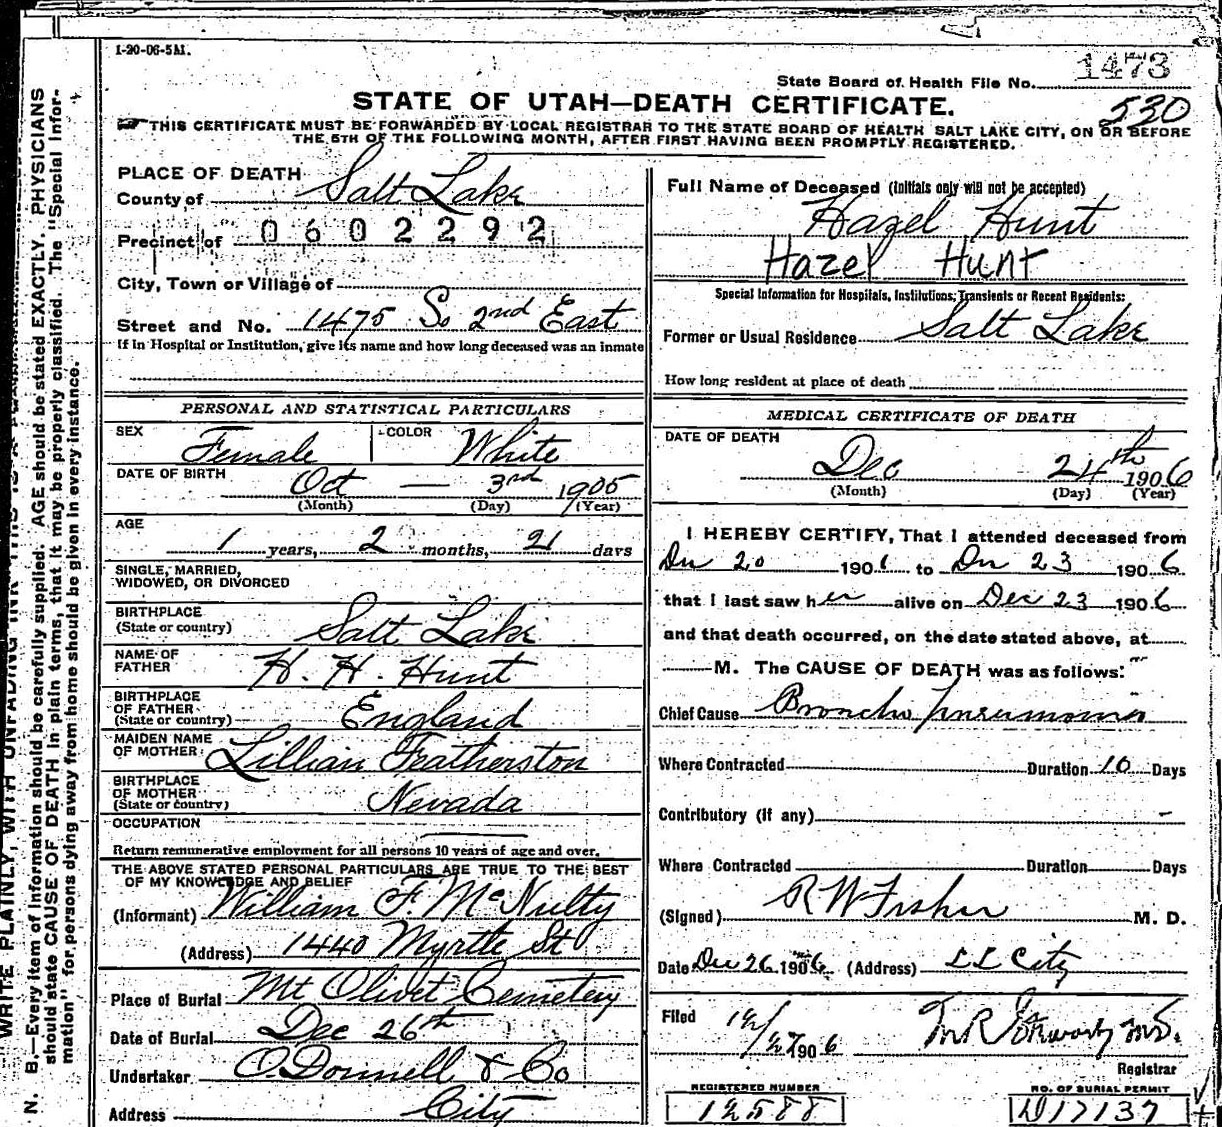 1-20-06-5M.
State Board of Health File No. 1473
530
STATE OF UTAH—DEATH CERTIFICATE.
THIS CERTIFICATE MUST BE FORWARDED BY LOCAL REGISTRAR TO THE STATE BOARD OF HEALTH SALT LAKE CITY, ON OR BEFORE
THE 5TH OF THE FOLLOWING MONTH, AFTER FIRST HAVING BEEN PROMPTLY REGISTERED.
PLACE OF DEATH
County of Salt Lake
Precinct of 0602292
City, Town or Village of
Street and No. 1475 So 2nd East
If in Hospital or Institution, give its name and how long deceased was an inmate
PERSONAL AND STATISTICAL PARTICULARS
SEX Female COLOR White
DATE OF BIRTH Oct — 3rd 1905
(Month) (Day) (Year)
AGE 1 years, 2 months, 21 days
SINGLE, MARRIED,
WIDOWED, OR DIVORCED
BIRTHPLACE
(State or country) Salt Lake
NAME OF
FATHER H. H. Hunt
BIRTHPLACE
OF FATHER
(State or country) England
MAIDEN NAME
OF MOTHER Lillian Featherston
BIRTHPLACE
OF MOTHER
(State or country) Nevada
OCCUPATION
Return remunerative employment for all persons 10 years of age and over.
THE ABOVE STATED PERSONAL PARTICULARS ARE TRUE TO THE BEST
OF MY KNOWLEDGE AND BELIEF
(Informant) William F. McNulty
(Address) 1440 Myrtle St
Place of Burial Mt Olivet Cemetery
Date of Burial Dec 26th
Undertaker O'Donnell & Co
Address City
Full Name of Deceased (Initials only will not be accepted)
Hazel Hunt
Hazel Hunt
Special Information for Hospitals, Institutions, Transients or Recent Residents:
Former or Usual Residence Salt Lake
How long resident at place of death
MEDICAL CERTIFICATE OF DEATH
DATE OF DEATH
Dec 24th 1906
(Month) (Day) (Year)
I HEREBY CERTIFY, That I attended deceased from
Dec 20 1906 to Dec 23 1906
that I last saw her alive on Dec 23 1906
and that death occurred, on the date stated above, at
M. The CAUSE OF DEATH was as follows:
Chief Cause Broncho pneumonia
Where Contracted Duration 10 Days
Contributory (if any) -
Where Contracted Duration Days
(Signed) R W Fisher M. D.
Date Dec 26 1906 (Address) S L City
Filed 12/27 1906
Registrar
REGISTERED NUMBER NO. OF BURIAL PERMIT
12588 D17137
N. B.—Every item of information should be carefully supplied. AGE should be stated EXACTLY. PHYSICIANS
should state CAUSE OF DEATH in plain terms, that it may be properly classified. The "Special Infor-
mation" for persons dying away from home should be given in every instance.
WRITE PLAINLY, WITH UNFADING INK—THIS IS A